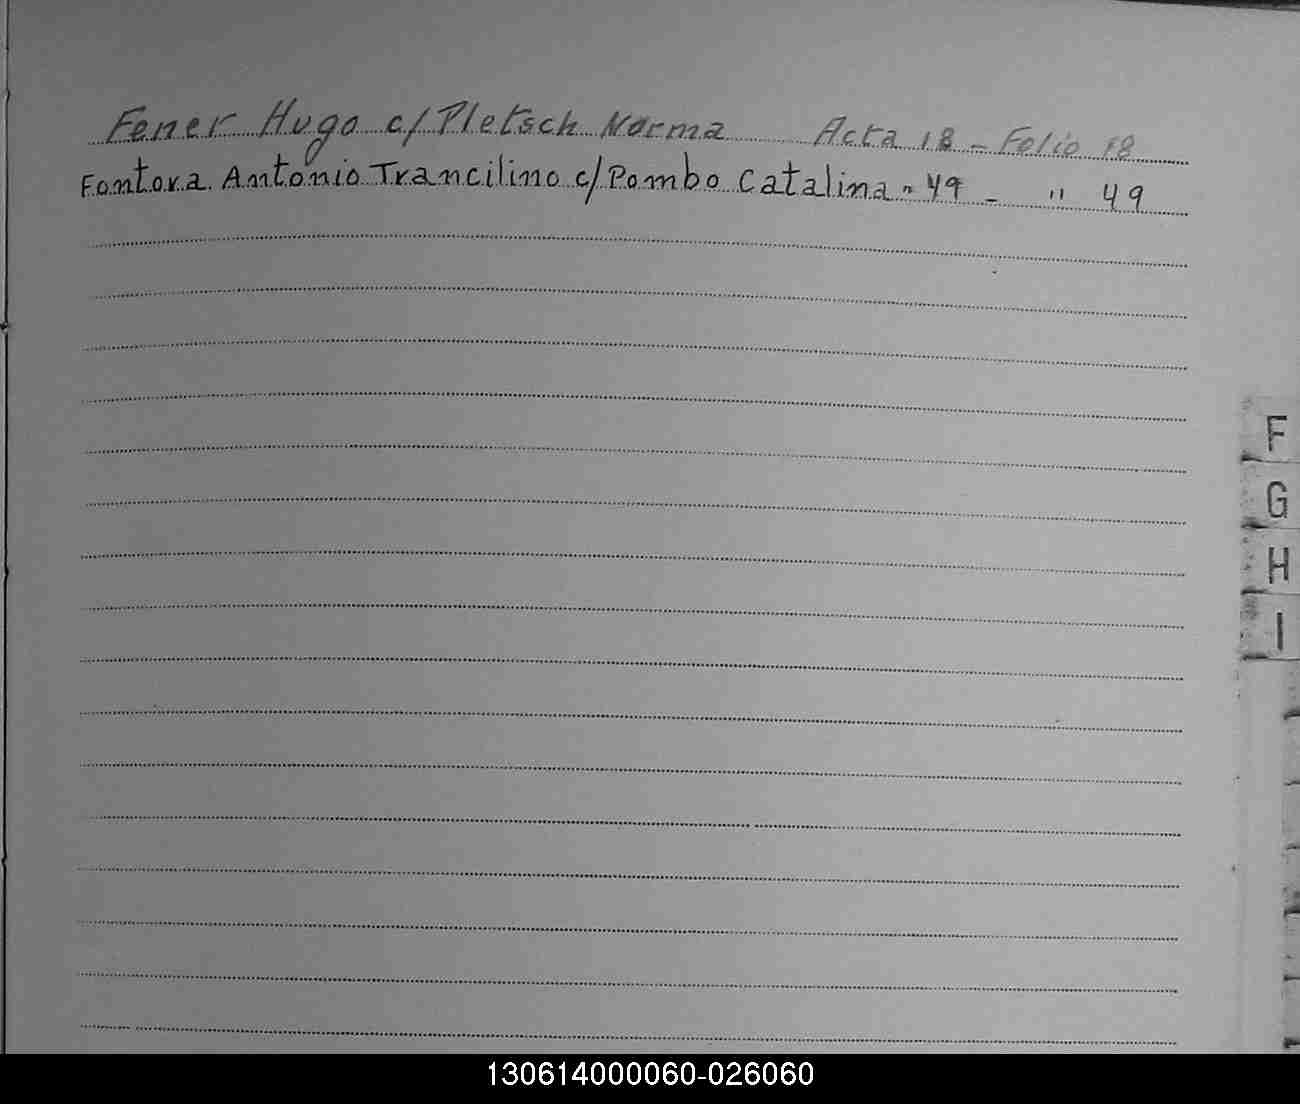 Fener Hugo c/ Pletsch Norma Acta 18 - Folio 18
Fontora Antonio Trancilino c/ Pombo Catalina " 49 - " 49
F
G
H
I
130614000060-026060